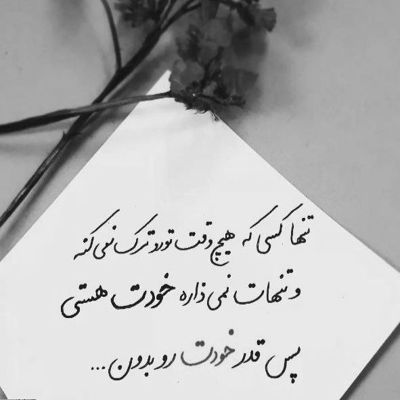 تنها کسی که هیچ وقت تورو ترک نمی کنه
و تنهات نمی ذاره خودت هستی
پس قدر خودت رو بدون ...